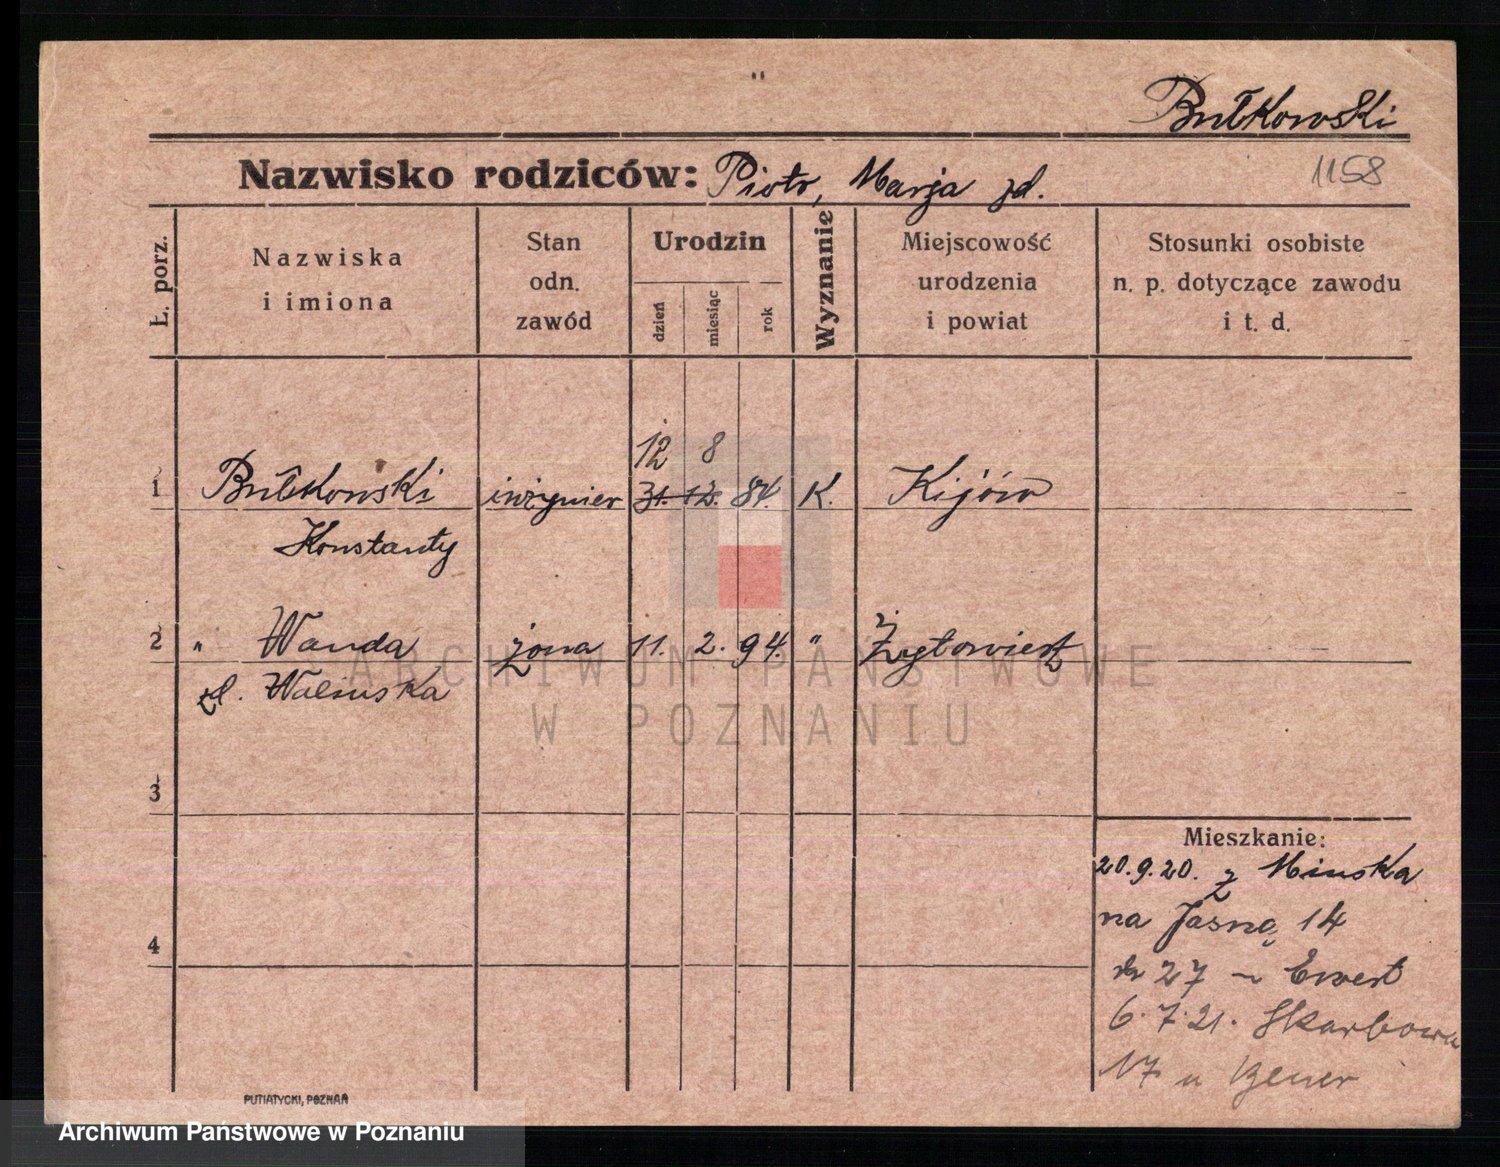 Bułkowski
Nazwisko rodziców: Piotr, Marja zd.
1158
Ł. porz.
Nazwiska
i imiona
Stan
odn.
zawód
Urodzin
dzień
miesiąc
rok
Wyznanie
Miejscowość
urodzenia
i powiat
Stosunki osobiste
n. p. dotyczące zawodu
i t. d.
12 8
1 Bułkowski inżynier 31. 12. 84. K. Kijów
Konstanty
2 " Wanda żona 11. 2. 94. "
zd.
3
4
Mieszkanie:
20.9.20. z Mińska
na Jasną 14
27 Ewert
6.7.21. Skarbowa
17 u
PUTIATYCKI, POZNAŃ
ARCHIWUM PAŃSTWOWE
W POZNANIU
Archiwum Państwowe w Poznaniu